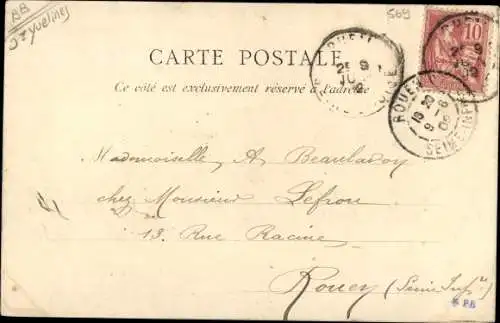 BB
Yvelines
569
CARTE POSTALE
Ce côté est exclusivement réservé à l'adresse
RUEIL
2E 9
JUIN
02
10
ROUEN
SEINE-INFRE
Mademoiselle A Beauladoy
chez Monsieur Lefrou
13, Rue Racine
Rouen (Seine Infre)